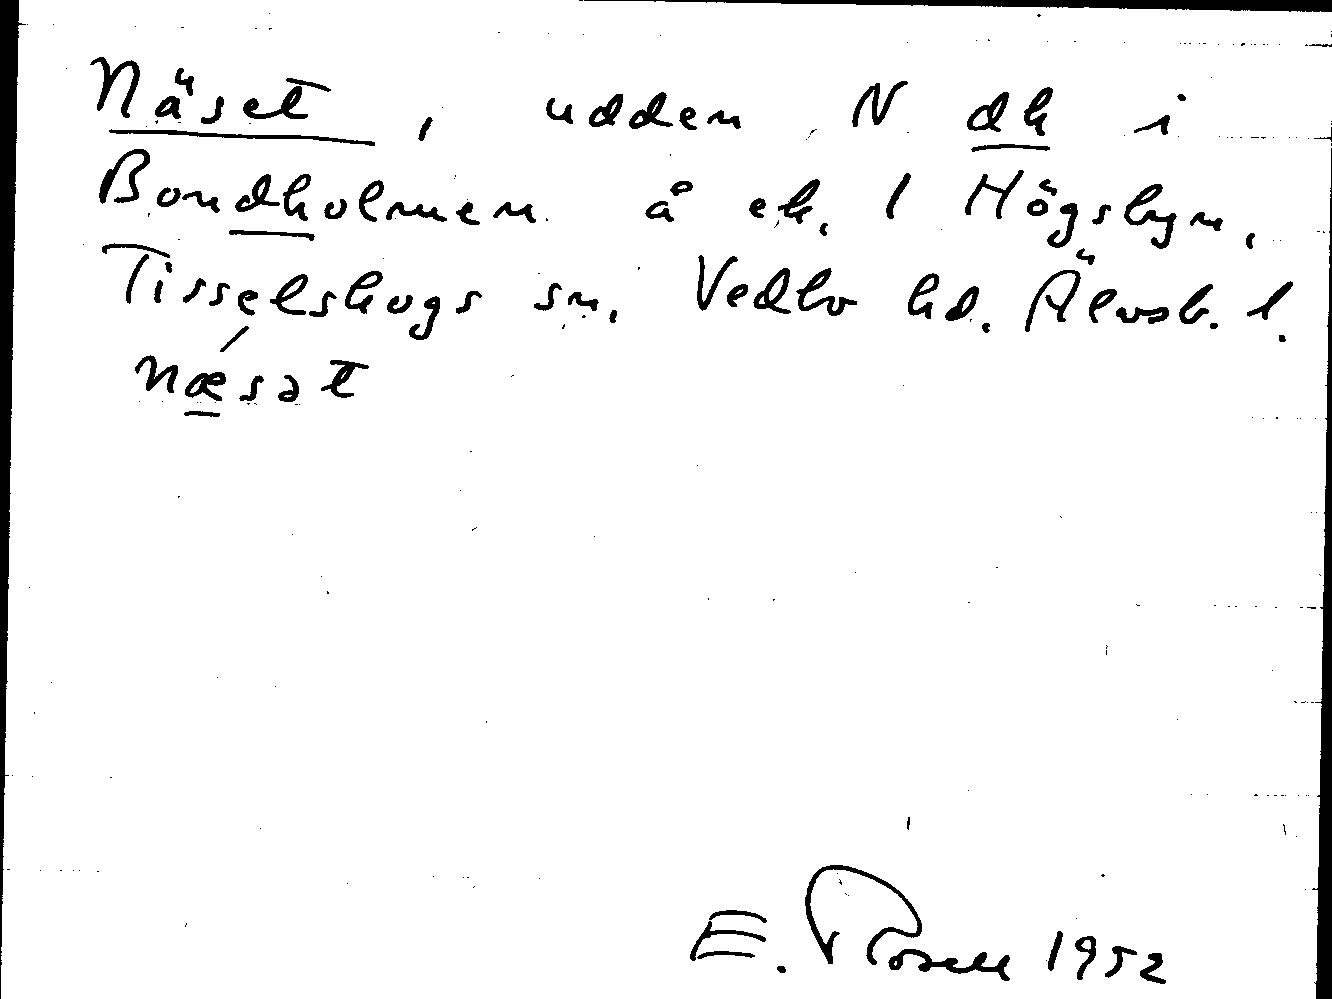 Näset, udden N dh i
Bondholmen å ek. 1 Högsbyn,
Tisselskogs sn, Vedbo hd. Älvsb. l.
næsət
E. Rosell 1952